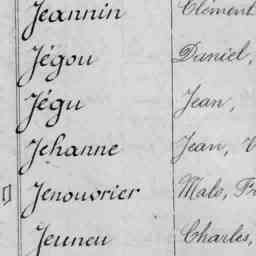 Jeannin Clément
Jégou Daniel,
Jégu Jean,
Jehanne Jean, V
Jenouvrier Malo, Fr
Jeuneu Charles,